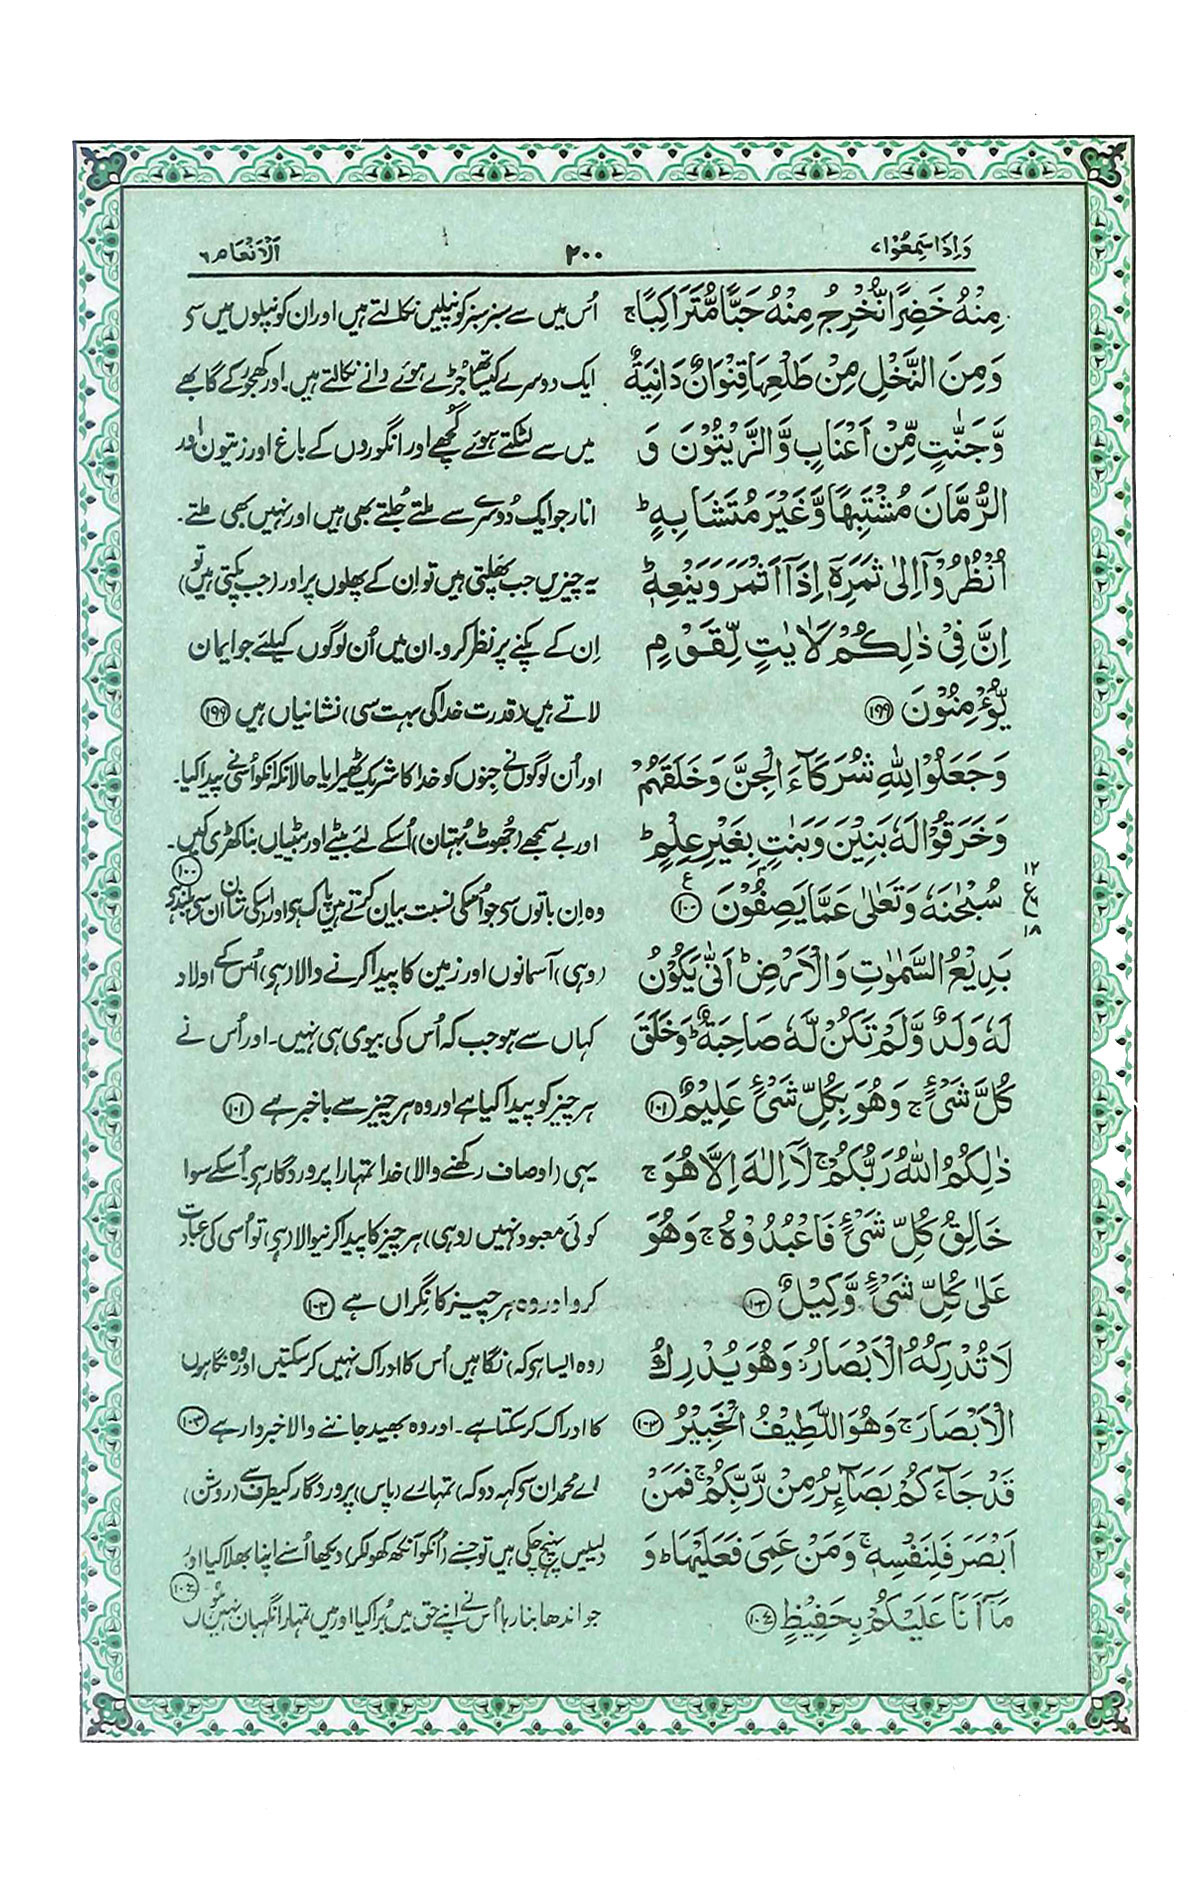 وَاِذَا سَمِعُوْا ۷ ۲۰۰ اَلْاَنْعَام ۶
مِنْهُ خَضِرًا نُّخْرِجُ مِنْهُ حَبًّا مُّتَرَاكِبًا ۚ
وَمِنَ النَّخْلِ مِنْ طَلْعِهَا قِنْوَانٌ دَانِيَةٌ
وَّجَنّٰتٍ مِّنْ اَعْنَابٍ وَّالزَّيْتُوْنَ وَ
الرُّمَّانَ مُشْتَبِهًا وَّغَيْرَ مُتَشَابِهٍ ؕ
اُنْظُرُوْٓا اِلٰى ثَمَرِهٖٓ اِذَآ اَثْمَرَ وَيَنْعِهٖ ؕ
اِنَّ فِيْ ذٰلِكُمْ لَاٰيٰتٍ لِّقَوْمٍ
يُّؤْمِنُوْنَ ﴿۱۹۹﴾
وَجَعَلُوْا لِلّٰهِ شُرَكَآءَ الْجِنَّ وَخَلَقَهُمْ
وَخَرَقُوْا لَهٗ بَنِيْنَ وَبَنٰتٍ بِغَيْرِ عِلْمٍ ؕ
سُبْحٰنَهٗ وَتَعٰلٰى عَمَّا يَصِفُوْنَ ﴿۱۰۰﴾ ع
۱۲
ع
۱۸
بَدِيْعُ السَّمٰوٰتِ وَالْاَرْضِ ؕ اَنّٰى يَكُوْنُ
لَهٗ وَلَدٌ وَّلَمْ تَكُنْ لَّهٗ صَاحِبَةٌ ؕ وَخَلَقَ
كُلَّ شَيْءٍ ۚ وَهُوَ بِكُلِّ شَيْءٍ عَلِيْمٌ ﴿۱۰۱﴾
ذٰلِكُمُ اللّٰهُ رَبُّكُمْ ۚ لَآ اِلٰهَ اِلَّا هُوَ ۚ
خَالِقُ كُلِّ شَيْءٍ فَاعْبُدُوْهُ ۚ وَهُوَ
عَلٰى كُلِّ شَيْءٍ وَّكِيْلٌ ﴿۱۰۲﴾
لَا تُدْرِكُهُ الْاَبْصَارُ ۫ وَهُوَ يُدْرِكُ
الْاَبْصَارَ ۚ وَهُوَ اللَّطِيْفُ الْخَبِيْرُ ﴿۱۰۳﴾
قَدْ جَآءَكُمْ بَصَآئِرُ مِنْ رَّبِّكُمْ ۚ فَمَنْ
اَبْصَرَ فَلِنَفْسِهٖ ۚ وَمَنْ عَمِيَ فَعَلَيْهَا ؕ وَ
مَآ اَنَا عَلَيْكُمْ بِحَفِيْظٍ ﴿۱۰۴﴾
اُس میں سے سبز سبز کونپلیں نکالتے ہیں اور ان کونپلوں میں سی
ایک دوسرے کیساتھ جُڑے ہوئے دانے نکالتے ہیں۔ اور کھجور کے گابھے
میں سے لٹکتے ہوئے گُچھے اور انگوروں کے باغ اور زیتون اور
انار جو ایک دُوسرے سے ملتے جُلتے بھی ہیں اور نہیں بھی ملتے۔
یہ چیزیں جب پھلتی ہیں تو اِن کے پھلوں پر اور (جب پکتی ہیں تو)
اِن کے پکنے پر نظر کرو۔ ان میں اُن لوگوں کیلئے جو ایمان
لاتے ہیں (قدرت خدا کی بہت سی) نشانیاں ہیں ﴿۱۹۹﴾
اور اُن لوگوں نے جنوں کو خدا کا شریک ٹھیرایا حالانکہ انکو اُسی نے پیدا کیا۔
اور بے سمجھے (جُھوٹ بُہتان) اُسکے لئے بیٹے اور بیٹیاں بنا کھڑی کیں۔
وہ اِن باتوں سی جو اُسکی نسبت بیان کرتے ہیں پاک ہی اور اسکی شان ان سی بلند ہی ﴿۱۰۰﴾
(وہی) آسمانوں اور زمین کا پیدا کرنے والا (ہی) اُس کے اولاد
کہاں سے ہو جب کہ اُس کی بیوی ہی نہیں۔ اور اُس نے
ہر چیز کو پیدا کیا ہے اور وہ ہر چیز سے باخبر ہے ﴿۱۰۱﴾
یہی (اوصاف رکھنے والا) خدا تمہارا پروردگار ہی۔ اُسکے سوا
کوئی معبود نہیں (وہی) ہر چیز کا پیدا کرنیوالا (ہی) تو اُسی کی عبادت
کرو اور وہ ہر چیز کا نِگراں ہے ﴿۱۰۲﴾
(وہ ایسا ہی کہ) نگاہیں اُس کا ادراک نہیں کر سکتیں اور وہ نگاہوں
کا ادراک کر سکتا ہے۔ اور وہ بھید جاننے والا خبردار ہے ﴿۱۰۳﴾
(اے محمد ان سی کہہ دو کہ) تمہارے (پاس) پروردگار کیطرف سے (روشن)
دلیلیں پہنچ چکی ہیں تو جسنے (اُنکو آنکھ کھولکر) دیکھا اُسنے اپنا بھلا کیا اور
جو اندھا بنا رہا اُس نے اپنے حق میں بُرا کیا اور میں تمہارا نگہبان نہیں ہُوں ﴿۱۰۴﴾